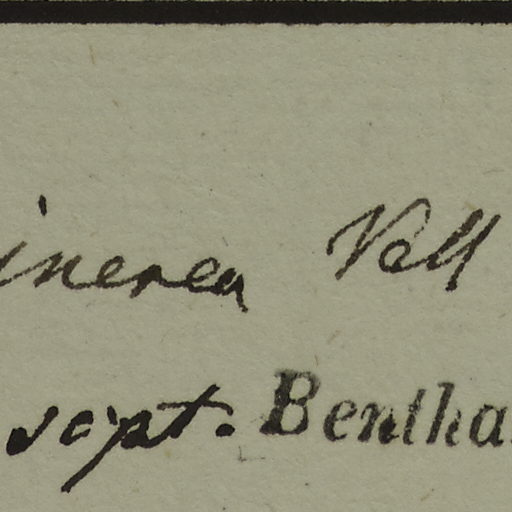 inerea Vell
scipt. Bentha